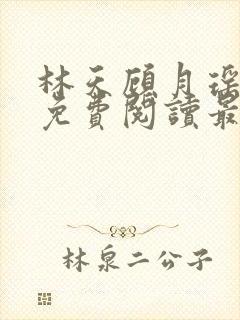 林天顧月瑤
免費閱讀最
林泉二公子